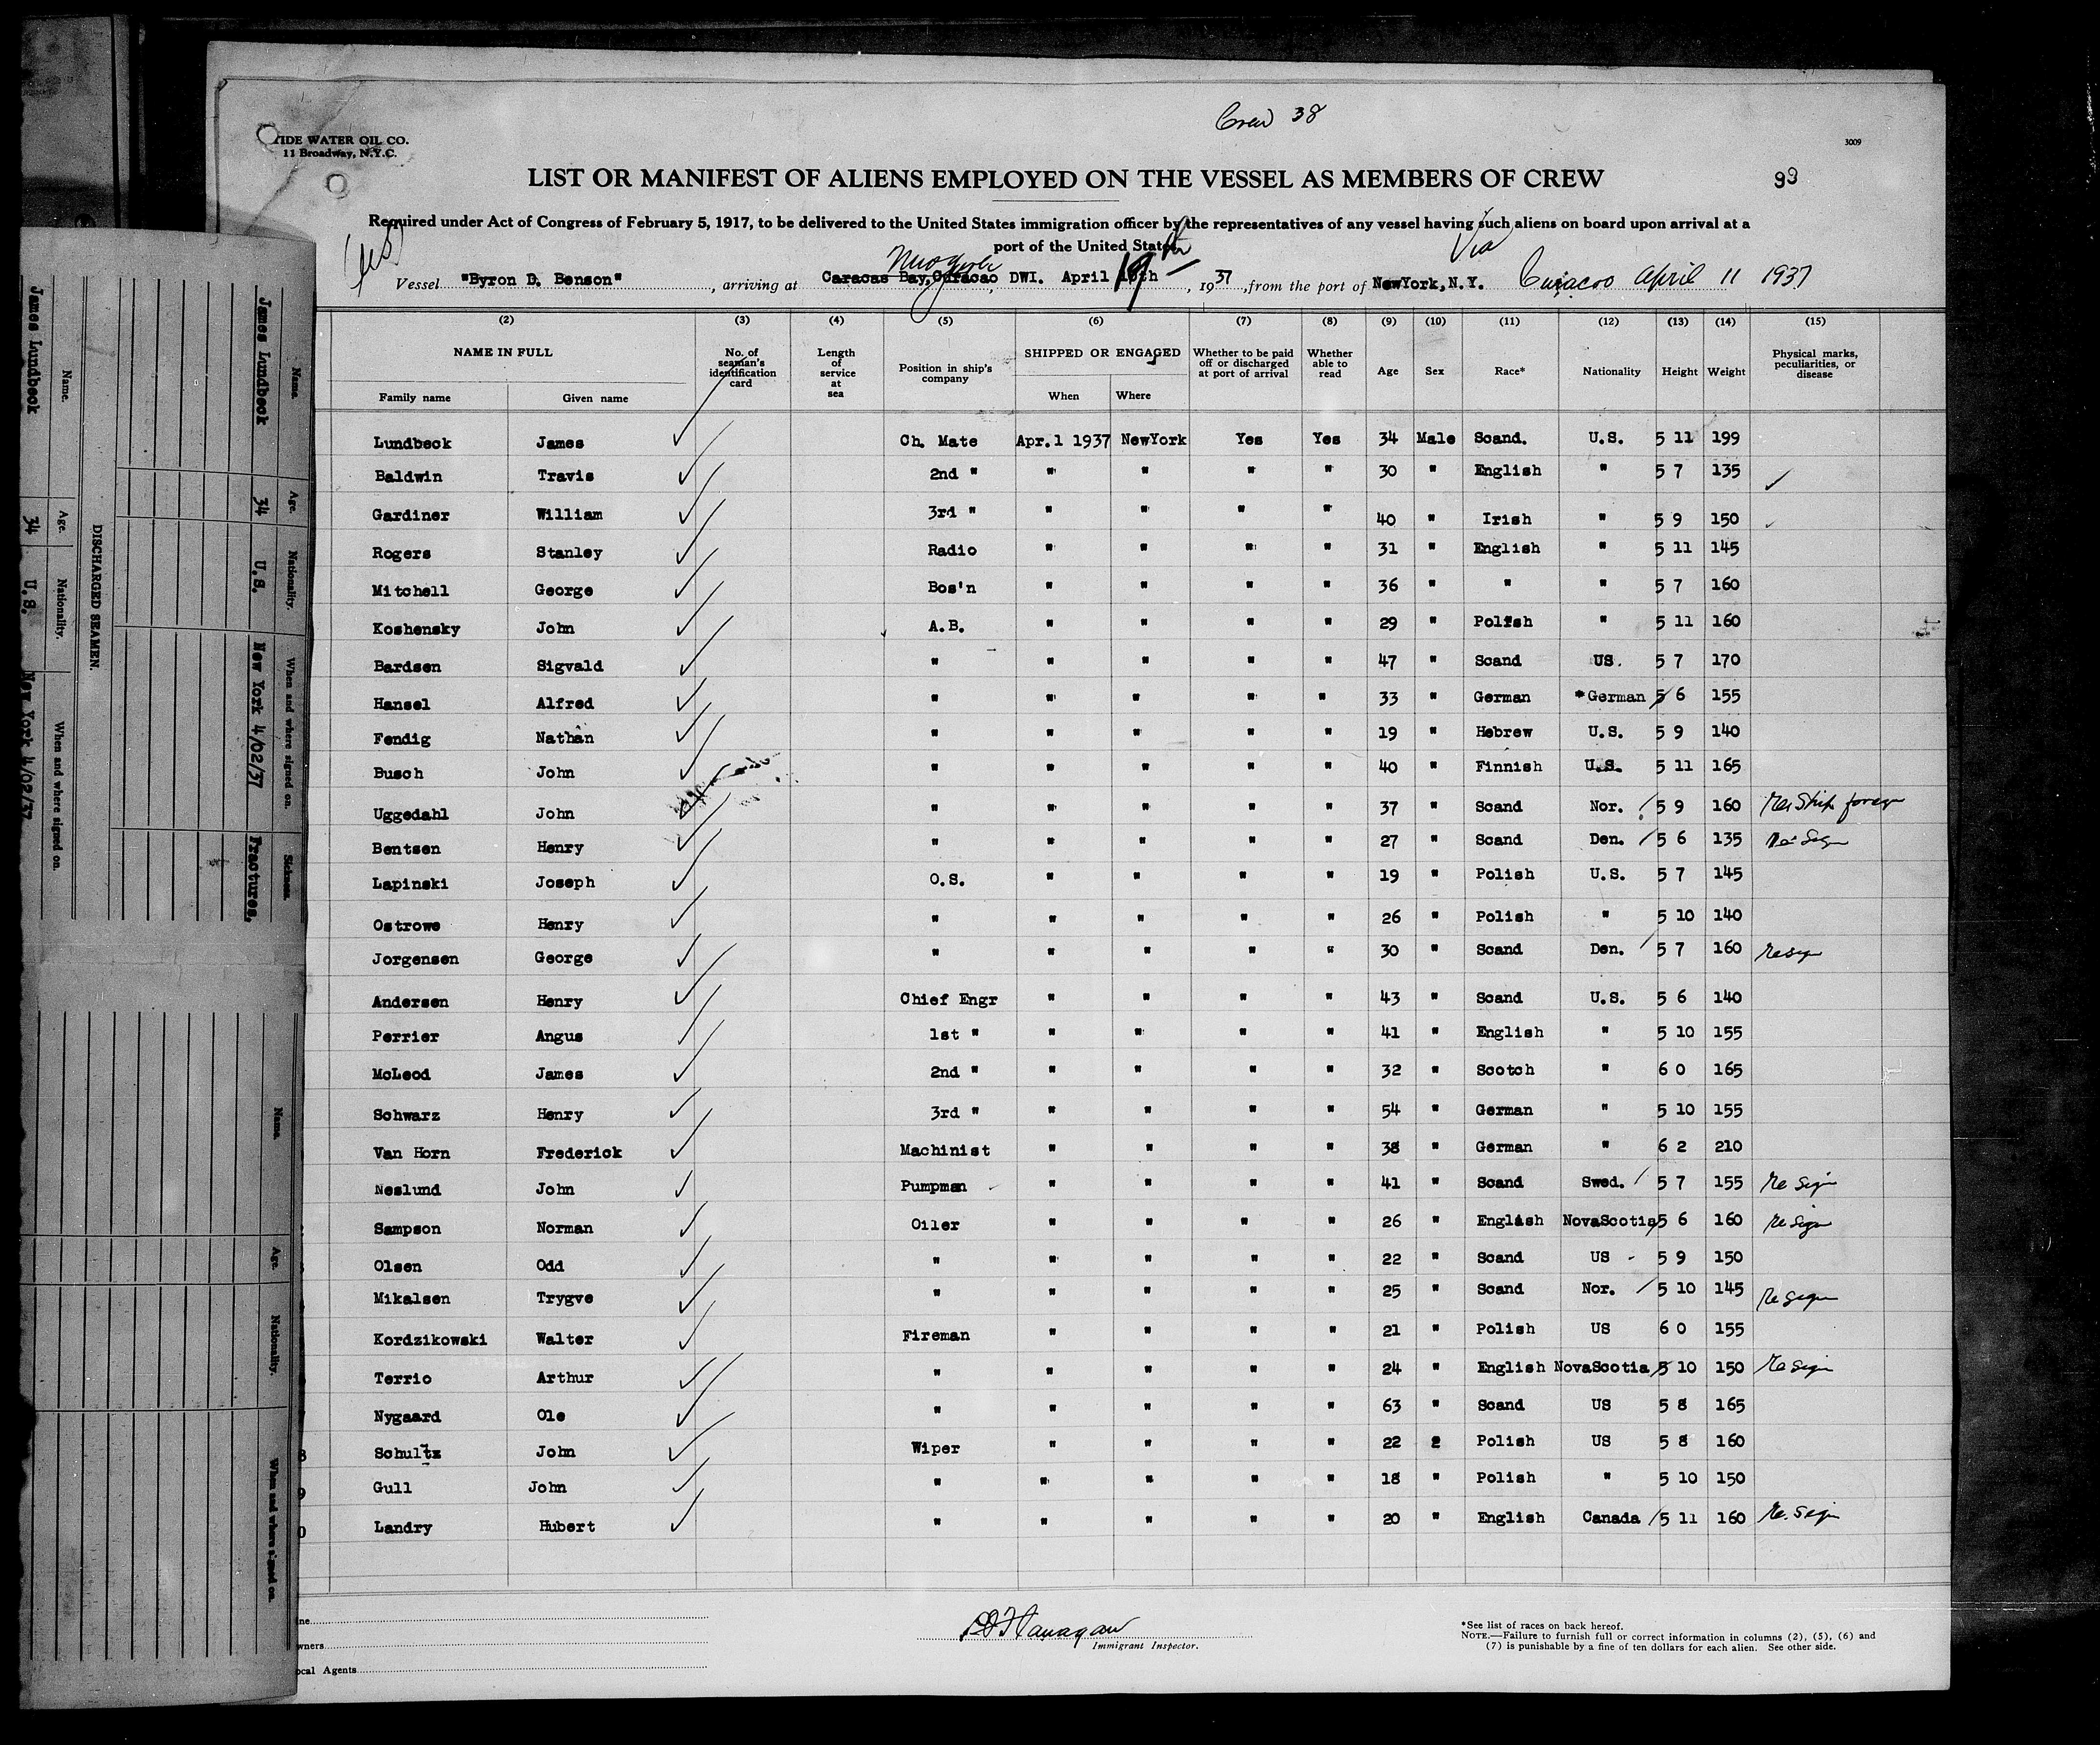 Crew 38
TIDE WATER OIL CO.
11 Broadway, N.Y.C.
3009
LIST OR MANIFEST OF ALIENS EMPLOYED ON THE VESSEL AS MEMBERS OF CREW
99
Required under Act of Congress of February 5, 1917, to be delivered to the United States immigration officer by the representatives of any vessel having such aliens on board upon arrival at a
port of the United States
Via
Vessel "Byron D. Benson", arriving at Caracas Bay, Curacao, DWI. April 19th, 1937, from the port of NewYork, N.Y. Curacao April 11 1937
(2) (3) (4) (5) (6) (7) (8) (9) (10) (11) (12) (13) (14) (15)
NAME IN FULL
Family name Given name
No. of seaman's identification card
Length of service at sea
Position in ship's company
SHIPPED OR ENGAGED
When Where
Whether to be paid off or discharged at port of arrival
Whether able to read
Age Sex Race* Nationality Height Weight
Physical marks, peculiarities, or disease
Lundbeck James Ch. Mate Apr.1 1937 NewYork Yes Yes 34 Male Scand. U.S. 5 11 199
Baldwin Travis 2nd " " " " " 30 " English " 5 7 135
Gardiner William 3rd " " " " " 40 " Irish " 5 9 150
Rogers Stanley Radio " " " " 31 " English " 5 11 145
Mitchell George Bos'n " " " " 36 " " " 5 7 160
Koshensky John A.B. " " " " 29 " Polish " 5 11 160
Bardsen Sigvald " " " " " 47 " Scand US. 5 7 170
Hansel Alfred " " " " " 33 " German *German 5 6 155
Fendig Nathan " " " " " 19 " Hebrew U.S. 5 9 140
Busch John " " " " " 40 " Finnish U.S. 5 11 165
Uggedahl John " " " " " 37 " Scand Nor. 5 9 160 Re Ship foreign
Bentsen Henry " " " " " 27 " Scand Den. 5 6 135 Re Sign
Lapinski Joseph O.S. " " " " 19 " Polish U.S. 5 7 145
Ostrowe Henry " " " " " 26 " Polish " 5 10 140
Jorgensen George " " " " " 30 " Scand Den. 5 7 160 Resign
Andersen Henry Chief Engr " " " " 43 " Scand U.S. 5 6 140
Perrier Angus 1st " " " " " 41 " English " 5 10 155
McLeod James 2nd " " " " " 32 " Scotch " 6 0 165
Schwarz Henry 3rd " " " " " 54 " German " 5 10 155
Van Horn Frederick Machinist " " " " 38 " German " 6 2 210
Neslund John Pumpman " " " " 41 " Scand Swed. 5 7 155 Re Sign
Sampson Norman Oiler " " " " 26 " English NovaScotia 5 6 160 Re Sign
Olsen Odd " " " " " 22 " Scand US 5 9 150
Mikalsen Trygve " " " " " 25 " Scand Nor. 5 10 145 Re sign
Kordzikowski Walter Fireman " " " " 21 " Polish US 6 0 155
Terrio Arthur " " " " " 24 " English NovaScotia 5 10 150 Re Sign
Nygaard Ole " " " " " 63 " Scand US 5 8 165
Schultz John Wiper " " " " 22 2 Polish US 5 8 160
Gull John " " " " " 18 " Polish " 5 10 150
Landry Hubert " " " " " 20 " English Canada 5 11 160 Re. Sign
Immigrant Inspector.
wners
ocal Agents
*See list of races on back hereof.
NOTE.—Failure to furnish full or correct information in columns (2), (5), (6) and
(7) is punishable by a fine of ten dollars for each alien. See other side.
DISCHARGED SEAMEN.
Name. Age. Nationality. When and where signed on. Sickness.
James Lundbeck 34 U.S. New York 4/02/37 Fractures,
Name. Age. Nationality. When and where signed on.
James Lundbeck 34 U.S. New York 4/02/37
Name. Age. Nationality. When and where signed on.